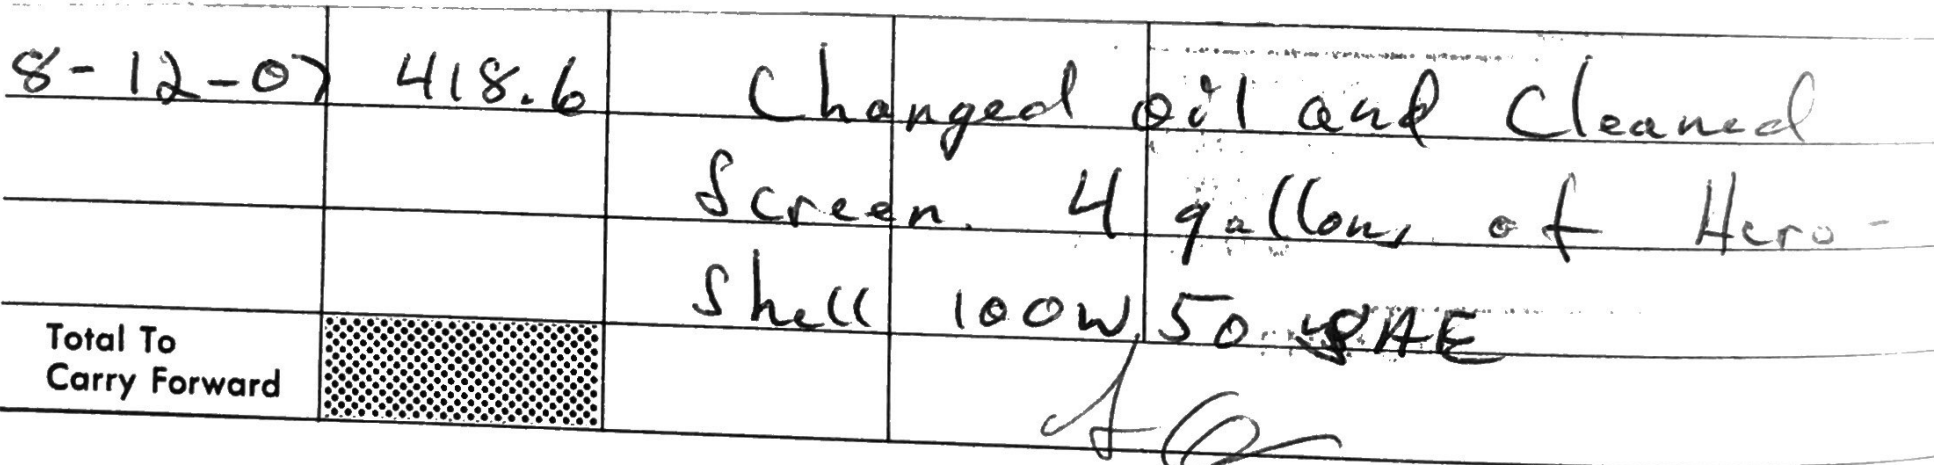 8-12-07 418.6 Changed oil and Cleaned
Screen. 4 gallons of Aero-
Shell 100W 50 SAE
Total To
Carry Forward